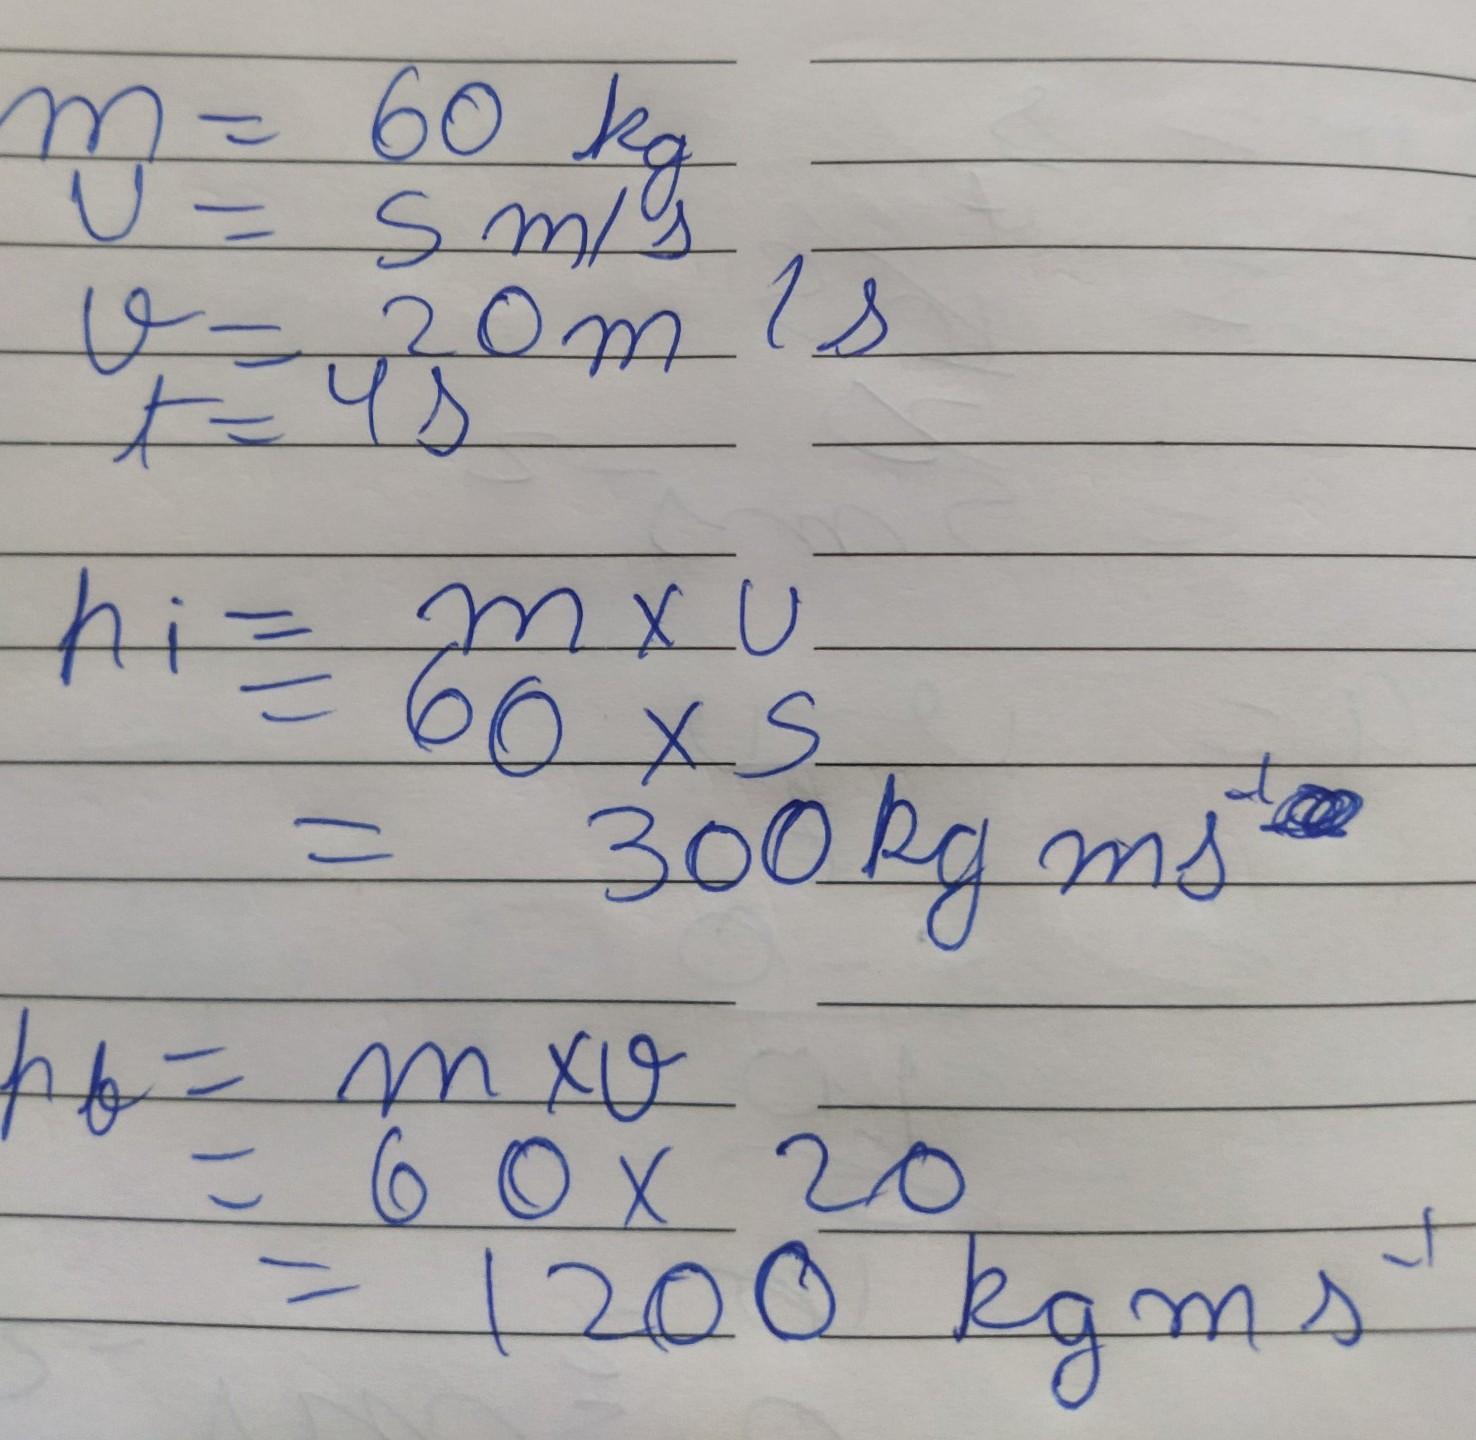 m = 60 kg
U = 5 m/s
v = 20 m/s
t = 4s
pi = m x U
= 60 x 5
= 300 kg ms⁻¹
pf = m x v
= 60 x 20
= 1200 kg m s⁻¹